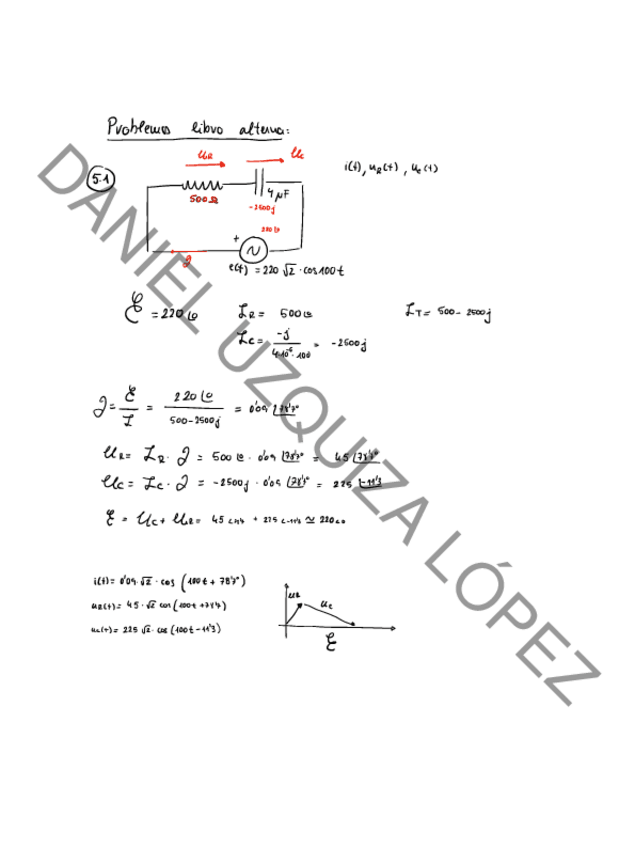 Problemas libro alterna:
5.1
U_R
U_C
i(t), u_R(t), u_c(t)
500Ω
4 μF
-2500j
220∠0
+
∼
I
e(t) = 220√2 · cos100t
ℰ = 220∠0
Z_R = 500∠0
Z_T = 500 - 2500j
Z_C = -j / 4·10⁻⁶·100 = -2500j
I = ℰ / Z = 220∠0 / 500-2500j = 0'09 ∠78'7°
U_R = Z_R · I = 500∠0 · 0'09 ∠78'7° = 45 ∠78'7°
U_C = Z_C · I = -2500j · 0'09 ∠78'7° = 225 ∠-11'3
ℰ = U_C + U_R = 45 ∠78'7 + 225 ∠-11'3 ≃ 220∠0
i(t) = 0'09·√2 · cos (100t + 78'7°)
u_R(t) = 45·√2 cos (100t + 78'7)
u_c(t) = 225 √2 · cos (100t - 11'3)
U_R
U_c
ℰ
DANIEL UZQUIZA LÓPEZ